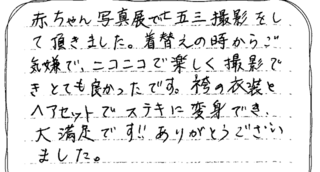 赤ちゃん写真展で七五三撮影をし
て頂きました。着替えの時からご
気嫌で、ニコニコで楽しく撮影で
きとても良かったです。袴の衣装と
ヘアセットでステキに変身でき、
大満足です!!ありがとうござい
ました。